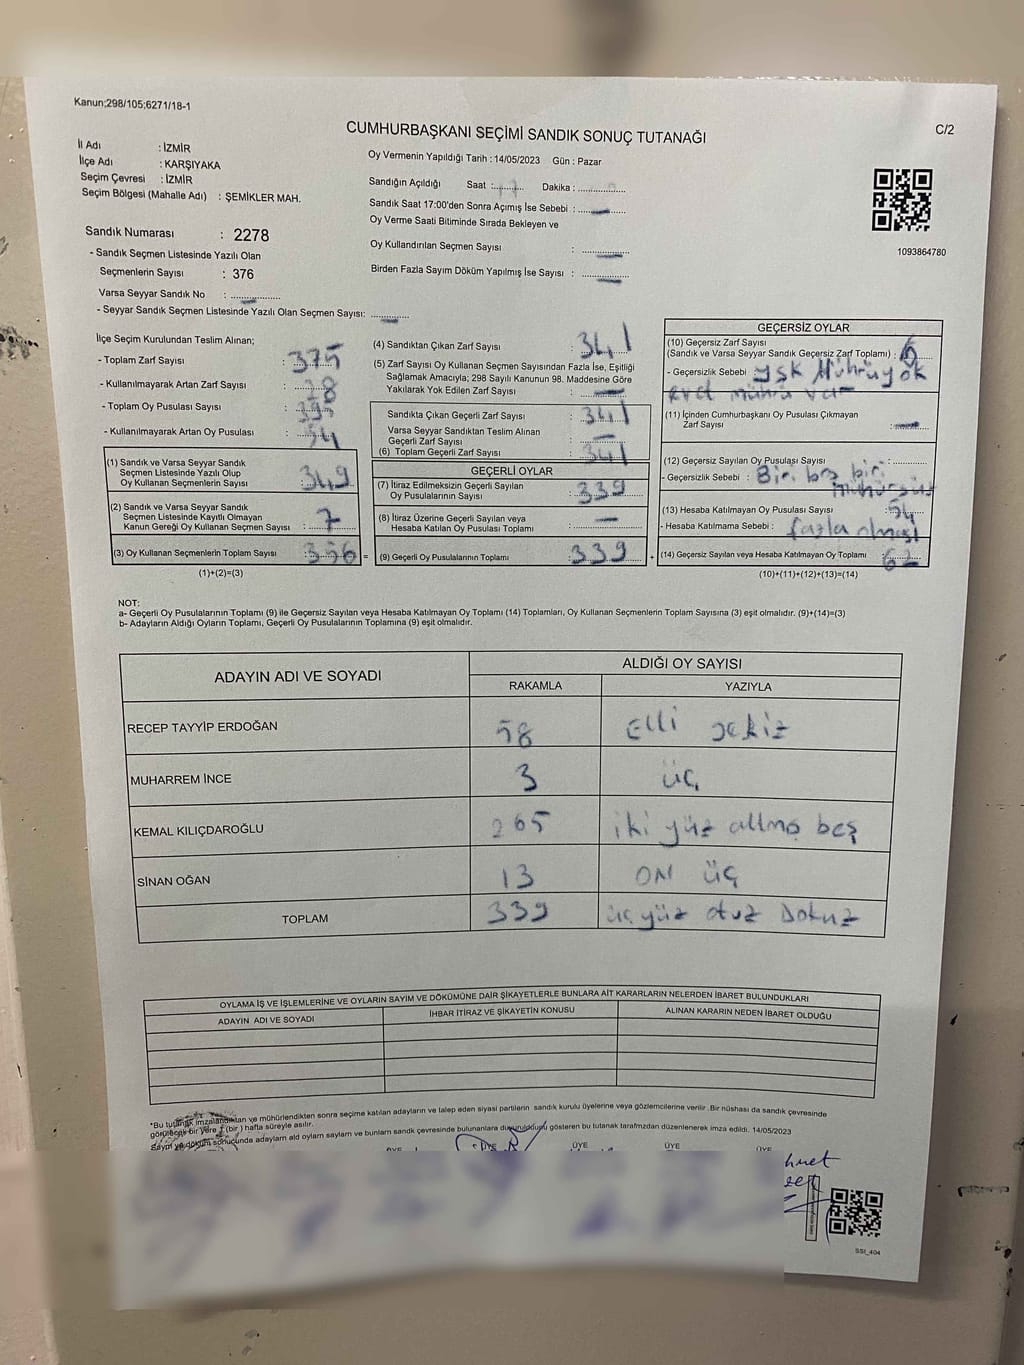 Kanun;298/105;6271/18-1
C/2
CUMHURBAŞKANI SEÇİMİ SANDIK SONUÇ TUTANAĞI
İl Adı : İZMİR
İlçe Adı : KARŞIYAKA
Seçim Çevresi : İZMİR
Seçim Bölgesi (Mahalle Adı) : ŞEMİKLER MAH.
Sandık Numarası : 2278
- Sandık Seçmen Listesinde Yazılı Olan
Seçmenlerin Sayısı : 376
Varsa Seyyar Sandık No :
- Seyyar Sandık Seçmen Listesinde Yazılı Olan Seçmen Sayısı:
Oy Vermenin Yapıldığı Tarih : 14/05/2023 Gün : Pazar
Sandığın Açıldığı Saat : 17 Dakika :
Sandık Saat 17:00'den Sonra Açımış İse Sebebi : —
Oy Verme Saati Bitiminde Sırada Bekleyen ve
Oy Kullandırılan Seçmen Sayısı : —
Birden Fazla Sayım Döküm Yapılmış İse Sayısı : —
1093864780
İlçe Seçim Kurulundan Teslim Alınan;
- Toplam Zarf Sayısı : 375
- Kullanılmayarak Artan Zarf Sayısı : 28
- Toplam Oy Pusulası Sayısı : 395
- Kullanılmayarak Artan Oy Pusulası : 54
(1) Sandık ve Varsa Seyyar Sandık
Seçmen Listesinde Yazılı Olup
Oy Kullanan Seçmenlerin Sayısı : 349
(2) Sandık ve Varsa Seyyar Sandık
Seçmen Listesinde Kayıtlı Olmayan
Kanun Gereği Oy Kullanan Seçmen Sayısı : 7
(3) Oy Kullanan Seçmenlerin Toplam Sayısı : 356 =
(1)+(2)=(3)
(4) Sandıktan Çıkan Zarf Sayısı : 341
(5) Zarf Sayısı Oy Kullanan Seçmen Sayısından Fazla İse, Eşitliği
Sağlamak Amacıyla; 298 Sayılı Kanunun 98. Maddesine Göre
Yakılarak Yok Edilen Zarf Sayısı : —
Sandıkta Çıkan Geçerli Zarf Sayısı : 341
Varsa Seyyar Sandıktan Teslim Alınan
Geçerli Zarf Sayısı : —
(6) Toplam Geçerli Zarf Sayısı : 341
GEÇERLİ OYLAR
(7) İtiraz Edilmeksizin Geçerli Sayılan
Oy Pusulalarının Sayısı : 339
(8) İtiraz Üzerine Geçerli Sayılan veya
Hesaba Katılan Oy Pusulası Toplamı : —
(9) Geçerli Oy Pusulalarının Toplamı : 339 +
GEÇERSİZ OYLAR
(10) Geçersiz Zarf Sayısı
(Sandık ve Varsa Seyyar Sandık Geçersiz Zarf Toplamı) : 6
- Geçersizlik Sebebi : YSK Mührü yok
evet mührü var
(11) İçinden Cumhurbaşkanı Oy Pusulası Çıkmayan
Zarf Sayısı : —
(12) Geçersiz Sayılan Oy Pusulası Sayısı :
- Geçersizlik Sebebi : Biri boş biri
mühürsüz
(13) Hesaba Katılmayan Oy Pusulası Sayısı : 54
- Hesaba Katılmama Sebebi : fazla olması
(14) Geçersiz Sayılan veya Hesaba Katılmayan Oy Toplamı : 62
(10)+(11)+(12)+(13)=(14)
NOT:
a- Geçerli Oy Pusulalarının Toplamı (9) ile Geçersiz Sayılan veya Hesaba Katılmayan Oy Toplamı (14) Toplamları, Oy Kullanan Seçmenlerin Toplam Sayısına (3) eşit olmalıdır. (9)+(14)=(3)
b- Adayların Aldığı Oyların Toplamı, Geçerli Oy Pusulalarının Toplamına (9) eşit olmalıdır.
ADAYIN ADI VE SOYADI ALDIĞI OY SAYISI
RAKAMLA YAZIYLA
RECEP TAYYİP ERDOĞAN 58 Elli sekiz
MUHARREM İNCE 3 üç
KEMAL KILIÇDAROĞLU 265 iki yüz altmış beş
SİNAN OĞAN 13 ON üç
TOPLAM 339 üç yüz otuz Dokuz
OYLAMA İŞ VE İŞLEMLERİNE VE OYLARIN SAYIM VE DÖKÜMÜNE DAİR ŞİKAYETLERLE BUNLARA AİT KARARLARIN NELERDEN İBARET BULUNDUKLARI
ADAYIN ADI VE SOYADI İHBAR İTİRAZ VE ŞİKAYETİN KONUSU ALINAN KARARIN NEDEN İBARET OLDUĞU
*Bu tutanak imzalandıktan ve mühürlendikten sonra seçime katılan adayların ve talep eden siyasi partilerin sandık kurulu üyelerine veya gözlemcilerine verilir. Bir nüshası da sandık çevresinde
görülecek bir yere 1 (bir) hafta süreyle asılır.
Sayım ve döküm sonucunda adayların ald oyların sayların ve bunların sandık çevresinde bulunanlara duyurulduğu gösteren bu tutanak tarafımızdan düzenlenerek imza edildi. 14/05/2023
ÜYE ÜYE ÜYE ÜYE ÜYE
SSI_404